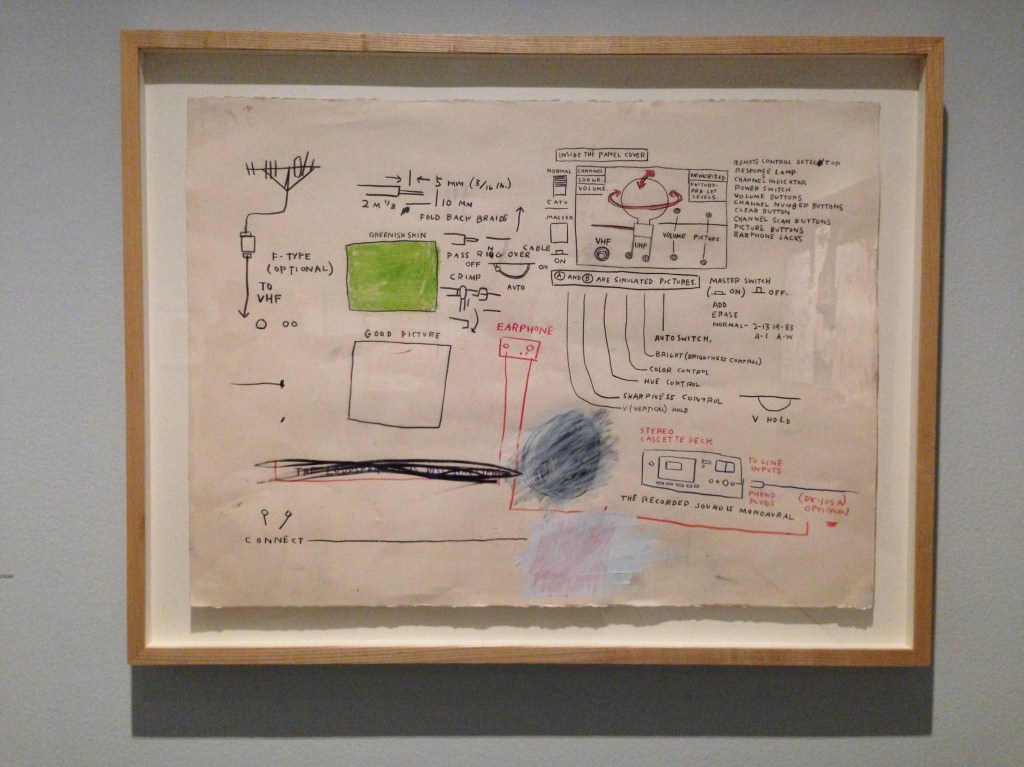 INSIDE THE PANEL COVER
NORMAL
CATV
MASTER
ON
CHANNEL
SOUND.
VOLUME.
MEMORIZED
FACTORY-
PRE SET
LEVELS.
VHF
UHF
VOLUME
PICTURE
REMOTE CONTROL DETECTOR
RESPONSE LAMP
CHANNEL INDICATOR
POWER SWITCH
VOLUME BUTTONS
CHANNEL NUMBER BUTTONS
CLEAR BUTTON
CHANNEL SCAN BUTTONS
PICTURE BUTTONS
EARPHONE JACKS
5 MM (3/16 IN.)
10 MM
FOLD BACK BRAIDS
F-TYPE
(OPTIONAL)
TO
VHF
GREENISH SKIN
PASS RING OVER
CABLE
OFF
ON
AUTO
CRIMP
A AND B ARE SIMULATED PICTURES.
MASTER SWITCH
ON) OFF.
ADD
ERASE
NORMAL- 2-13 14-83
A-W
AUTO SWITCH.
BRIGHT (BRIGHTNESS CONTROL)
COLOR CONTROL
HUE CONTROL
SHARPNESS CONTROL
V (VERTICAL) HOLD
V HOLD
GOOD PICTURE
EARPHONE
STEREO
CASCETTE DECK
TO LINE
INPUTS
PHONO
PLUGS
(RK-105A)
OPTIONAL)
THE RECORDED SOUND IS MONAURAL
CONNECT